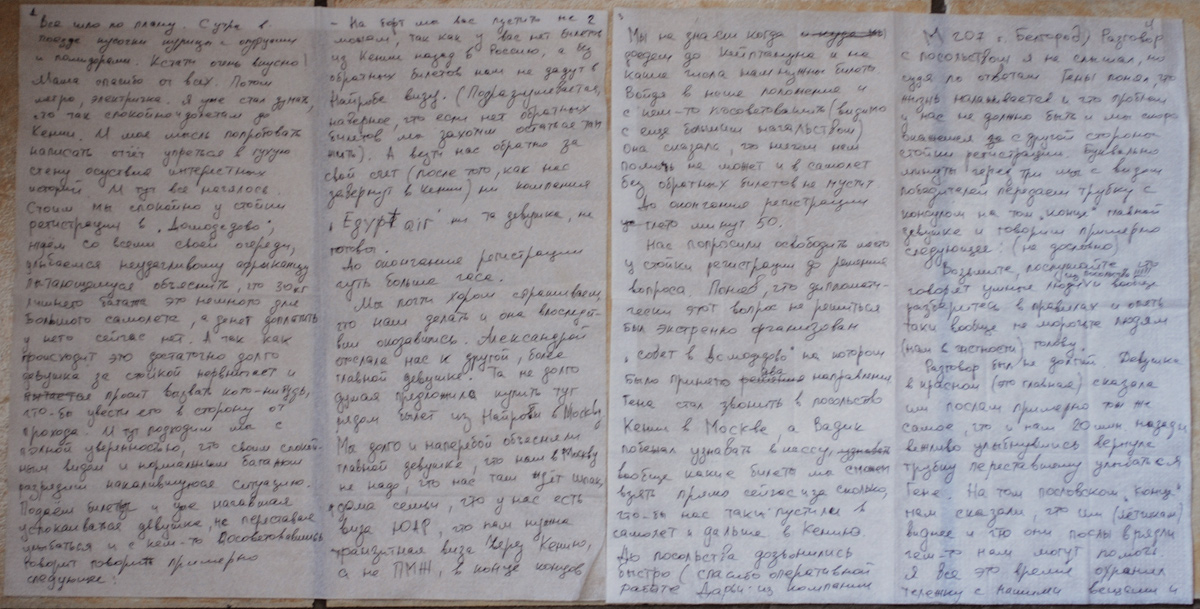 1
Все шло по плану. С утра в
поезде кусочки курицы с огурцами
и помидорами. Кстати очень вкусно!
Мама спасибо от всех. Потом
метро, электричка. Я уже стал думать,
что так спокойно долетам до
Кении. И моя мысль попробовать
написать отчёт упрется в глухую
стену осуствие интерестных
историй. И тут все началось.
Стоим мы спокойно у стойки
регистрации в "Домодедово",
ждём со всеми своей очереди,
улыбаемся неудачливому африканцу
пытающемуся объеснить, что 30 кг
лишнего багажа это немного для
большого самолета, а денег доплатить
у него сейчас нет. А так как
происходит это достаточно долго
девушка за стойкой нервничает и
просит вызвать кого-нибудь,
что-бы увести его в сторону от
прохода. И тут подходим мы с
полной уверенностью, что своим спокой-
ным видом и нормальным багажом
разредим накалившуюся ситуацию.
Подаем билеты и уже начавшая
успокаиваться девушка, не переставая
улыбаться и с кем-то посоветовавшись
говорит примерно
следующее:
2
- На борт мы вас пустить не
можем, так как у вас нет билетов
из Кении назад в Россию, а без
обратных билетов вам не дадут в
Найроби визу. (Подразумевается,
наверное, что если нет обратных
билетов мы захотим остаться там
жить). А везти нас обратно за
свой счет (после того, как нас
завернут в Кении) ни компания
"Egypt air" ни та девушка, не
готовы.
До окончания регистрации
чуть больше часа.
Мы почти хором спрашиваем
что нам делать и она впоследст-
вии оказавшись Александрой
отослала нас к другой, более
главной девушке. Та не долго
думая предложила купить тут
рядом билет из Найроби в Москву.
Мы долго и наперебой объесняли
главной девушке, что нам в Москву
не надо, что нас там ждёт
дома семьи, что у нас есть
виза ЮАР, что нам нужна
транзитная виза через Кению,
а не ПМЖ, в конце концов
3
Мы не знаем когда
доедем до Кейптауна и на
какие числа нам нужны билеты.
Войдя в наше положение и
с кем-то посоветовавшить (видимо
с еще большим начальством)
она сказала, что ничем нам
помочь не может и в самолет
без обратных билетов не пустит.
До окончания регистрации
минут 50.
Нас попросили освободить место
у стойки регистрации до решения
вопроса. Поняв, что дипломати-
чески этот вопрос не решиться
был экстренно организован
"совет в Домодедово" на котором
было принято два направления
Гена стал звонить в посольство
Кении в Москве, а Вадик
побежал узнавать в кассу,
вообще какие билеты мы сможем
взять прямо сейчас и за сколько,
что-бы нас таки пустили в
самолет и дальше в Кению.
До посольства дозвонились
быстро (спасибо оперативной
работе Дарьи из компании
4
М 207 г. Белгород) Разговор
с посольством я не слышал, но
судя по ответам Гены понял, что
жизнь налаживается и что проблем
у нас не должно быть и мы скоро
окажемся с другой стороны
стойки регистрации. Буквально
минуты через три мы с видом
победителей передаем трубку с
консулом на том "конце" главной
девушке и говорим примерно
следующее: (не дословно)
Возьмите, послушайте, что
говорят умные люди из посольства!!!!! и вообще
разберитесь в правилах и опять
таки вообще не морочьте людям
(нам в частности) голову.
Разговор был не долгий. Девушка
в красном (это главная) сказала
им послам примерно то же
самое, что и нам 20 мин назад и
вежливо улыбнувшись вернула
трубку переставшему улыбаться
Гене. На том пословском "конце"
нам сказали, что им (летчикам)
виднее и что они послы врядли
чем-то нам могут помочь.
Я все это время охранял
тележку с нашими вещами и